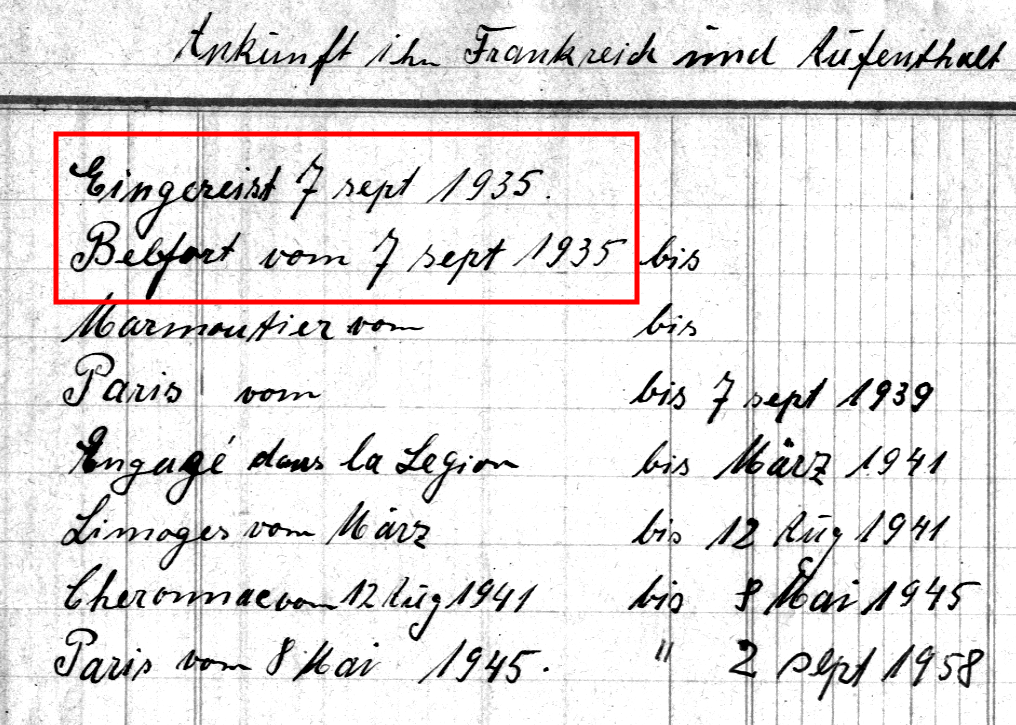 Ankunft ihn Frankreich und Aufenthalt
Eingereist 7 sept 1935.
Belfort vom 7 sept 1935 bis
Marmoutier vom bis
Paris vom bis 7 sept 1939
Engagé dans la Legion bis März 1941
Limoges vom März bis 12 Aug 1941
Cheronnac vom 12 Aug 1941 bis 8 Mai 1945
Paris vom 8 Mai 1945. " 2 sept 1958